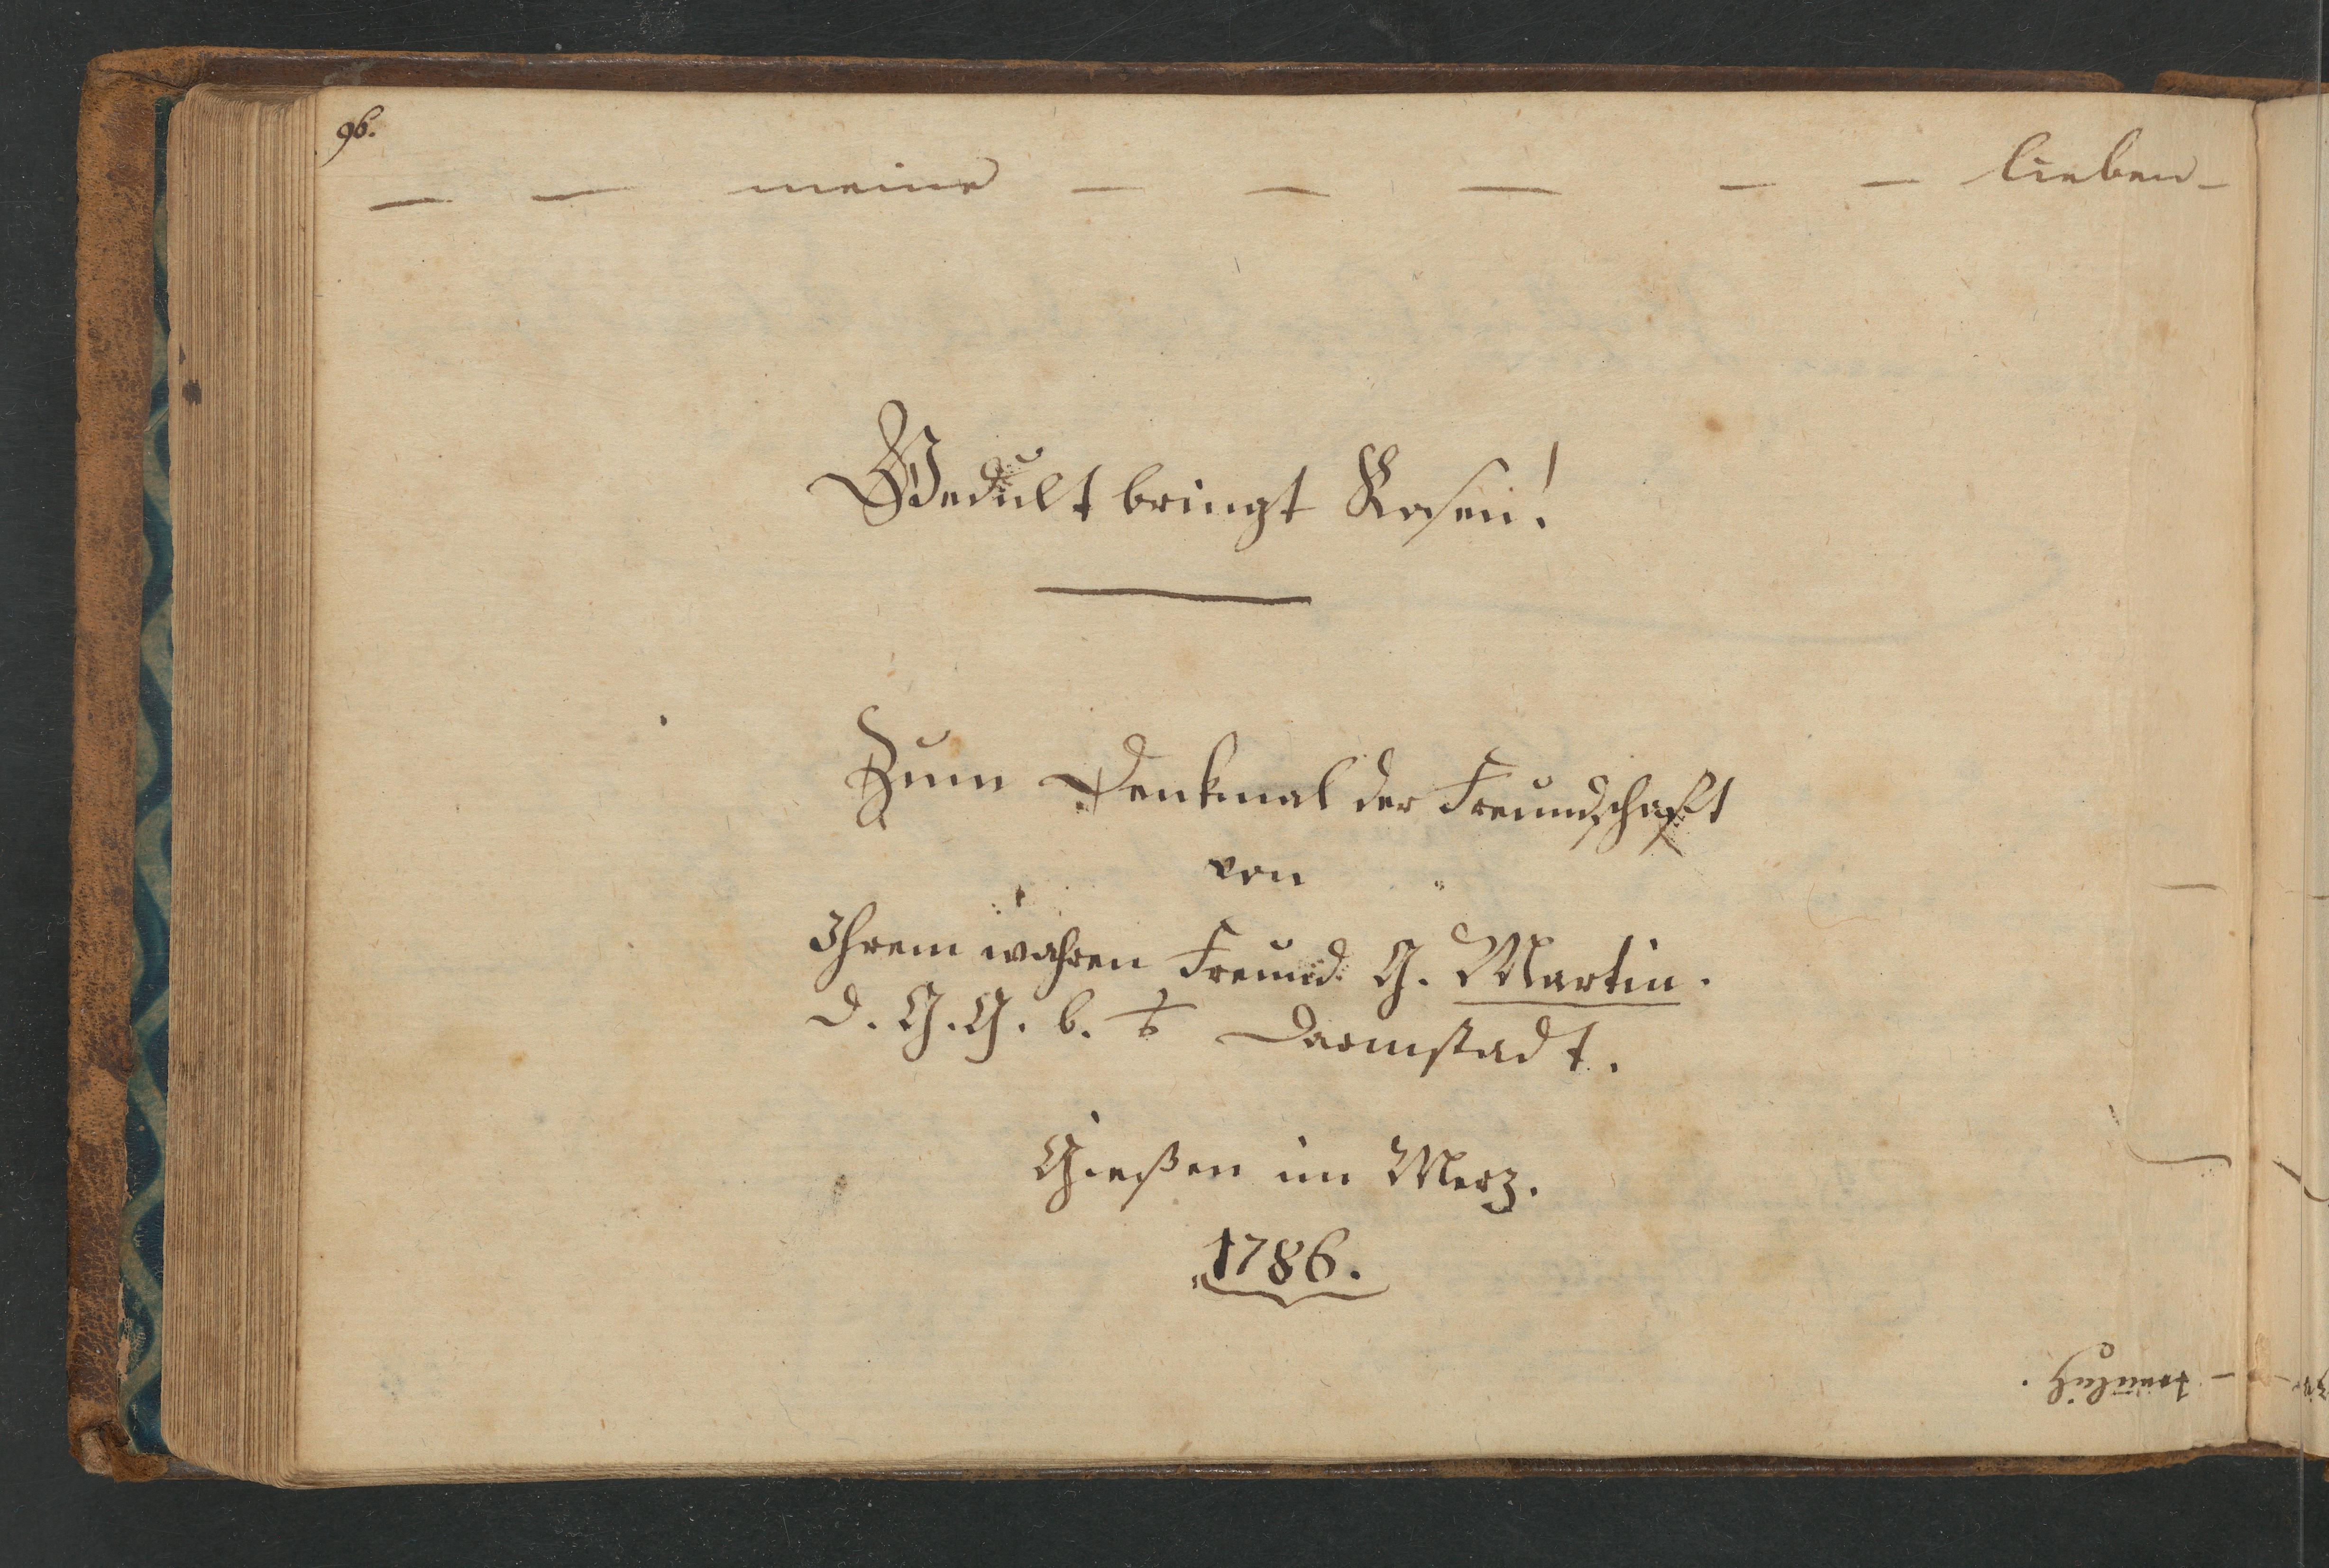 96.
— — meine — — — — — lieben —
Gedult bringt Rosen!
Zum Denkmal der Freundschaft
von
Ihrem wahren Freund G. Martin.
d. G. G. b. aus Darmstadt.
Gießen im Merz.
1786.
— treulich.